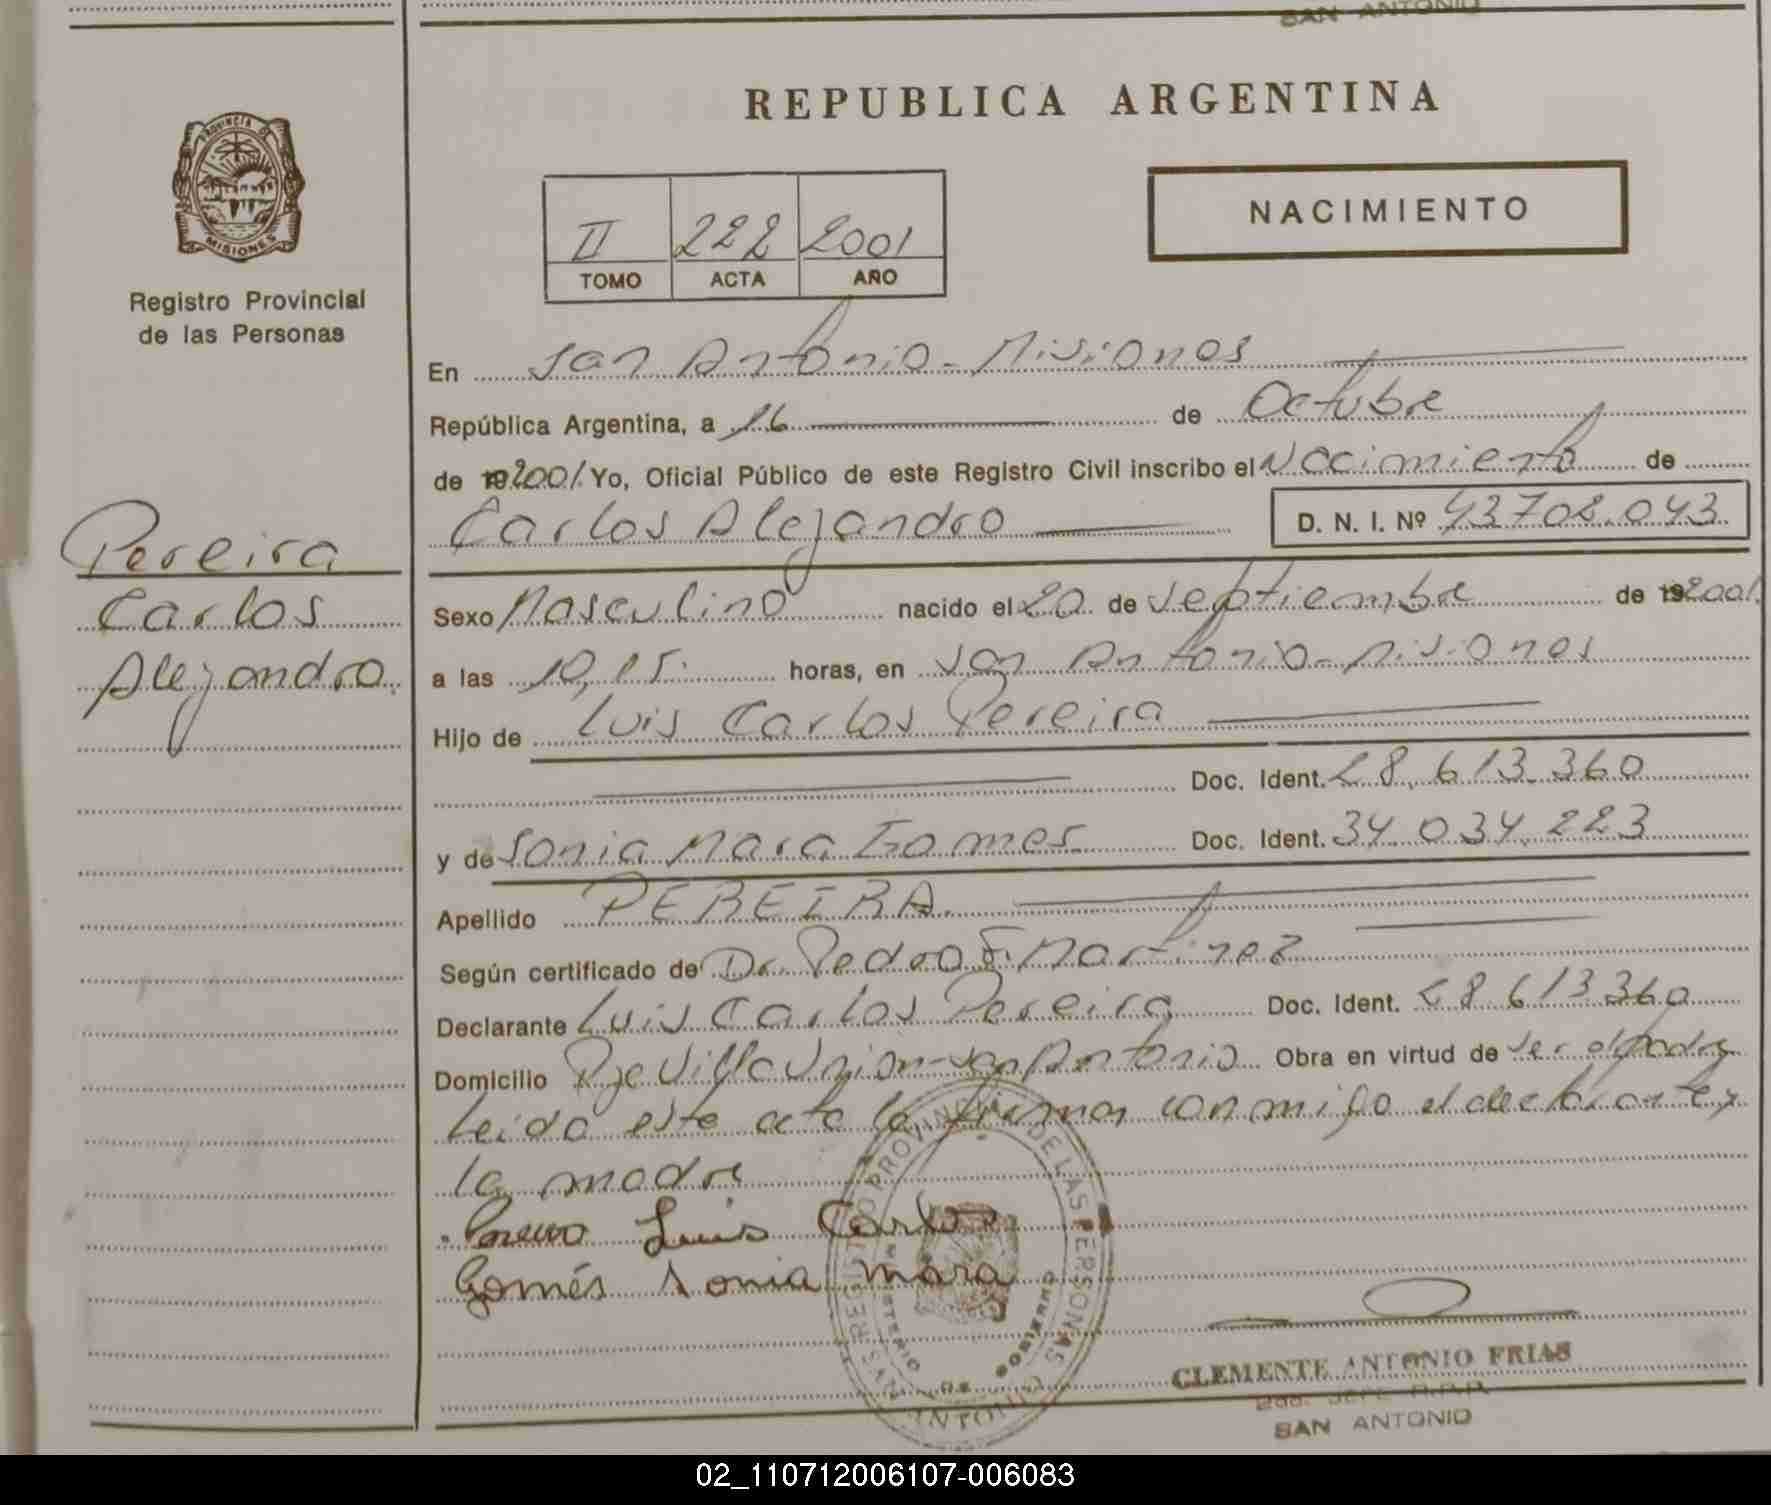 SAN ANTONIO
REPUBLICA ARGENTINA
PROVINCIA DE
MISIONES
Registro Provincial
de las Personas
II 222 2001
TOMO ACTA AÑO
NACIMIENTO
En San Antonio - Misiones
República Argentina, a 16 de Octubre
de 19 2001. Yo, Oficial Público de este Registro Civil inscribo el Nacimiento de
Carlos Alejandro D. N. I. Nº 43708.043
Pereira
Carlos
Alejandro.
Sexo Masculino nacido el 20 de Septiembre de 19 2001.
a las 10,15. horas, en San Antonio - Misiones
Hijo de Luis Carlos Pereira
Doc. Ident. 28.613.360
y de Sonia Mara Gomes. Doc. Ident. 34.034.223
Apellido PEREIRA.
Según certificado de Dr. Pedro F. Martinez
Declarante Luis Carlos Pereira Doc. Ident. 28613360
Domicilio Pje Villa Union - San Antonio Obra en virtud de ser el padre
Leida este acta la firman conmigo el declarante y
la madre
Luis Carlos
Gomés Sonia Mara
REGISTRO PROVINCIAL DE LAS PERSONAS
MINISTERIO DE GOBIERNO
CLEMENTE ANTONIO FRIAS
SAN ANTONIO
02_110712006107-006083